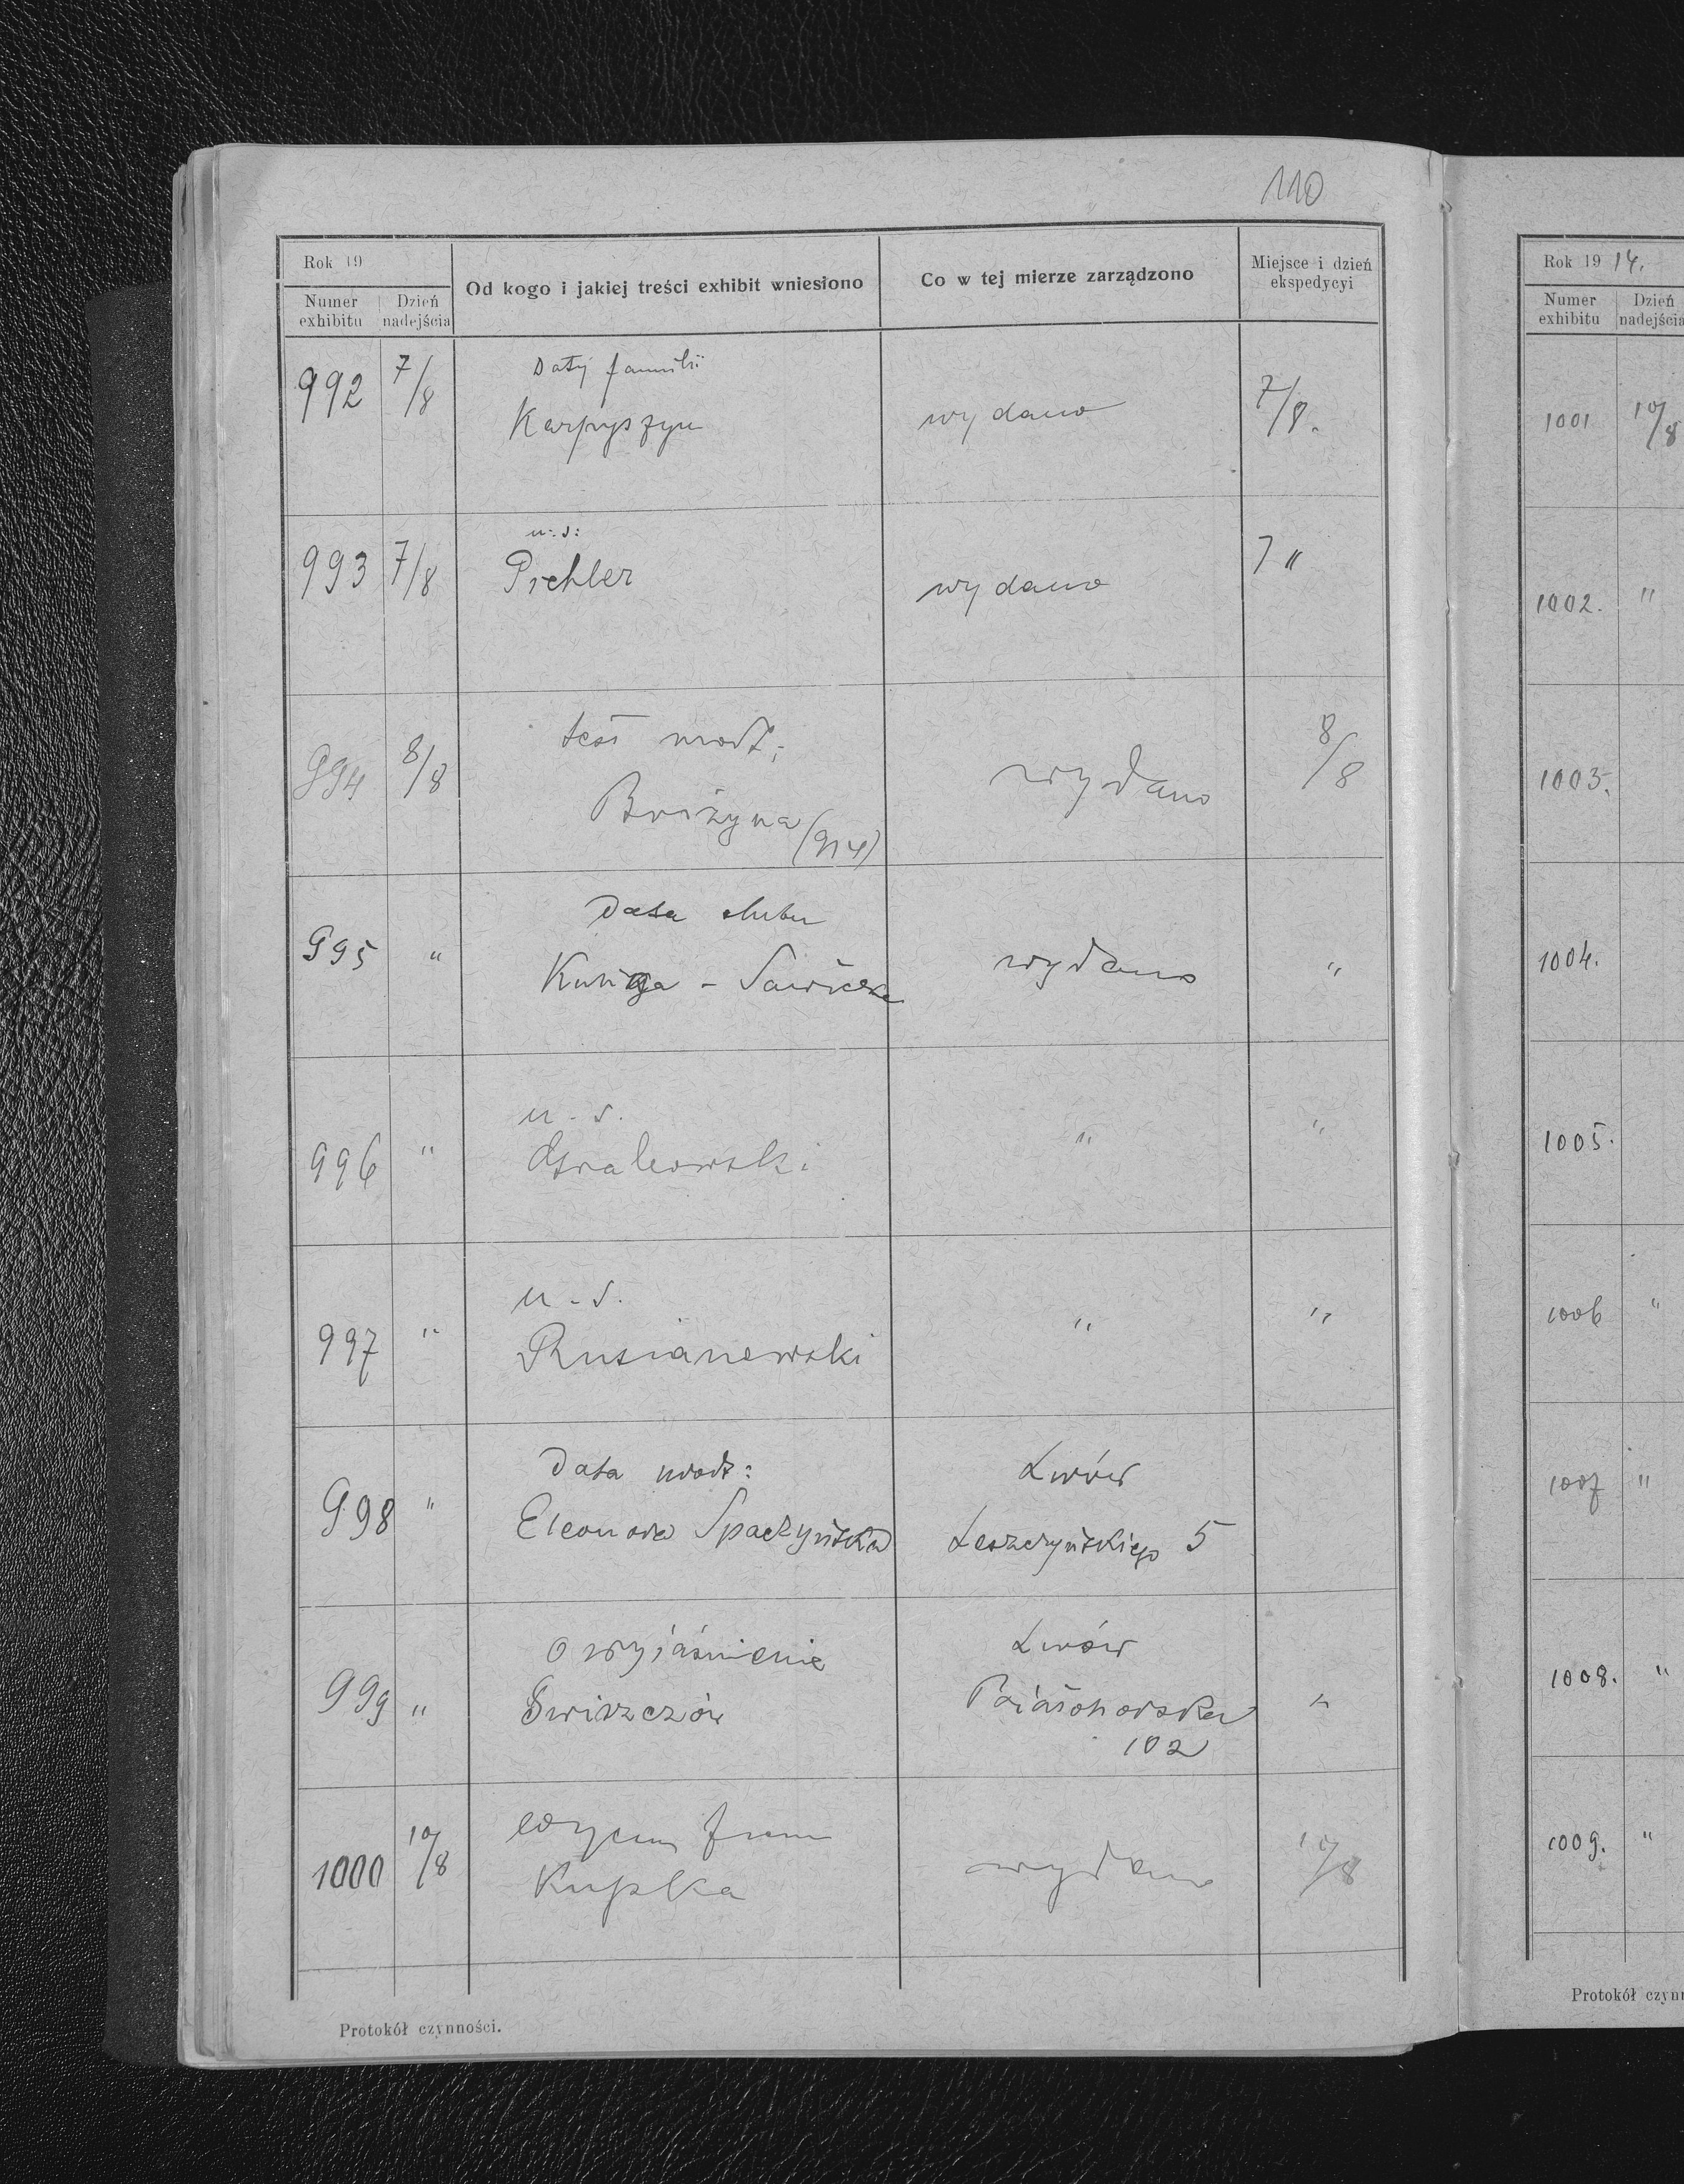 110
Rok 19
Numer exhibitu
Dzień nadejścia
Od kogo i jakiej treści exhibit wniesiono
Co w tej mierze zarządzono
Miejsce i dzień ekspedycyi
992 7/8 Daty familii
Karpyszyn wydano 7/8.
993 7/8 u. s:
Pichler wydano 7 "
994 8/8
Bożyna (914) wydano 8/8
995 " Data ślubu
Sawicka wydano "
996 " u. s.
Gralewski " "
997 " u. s.
Rusianowski " "
998 " Data urodz: Lwów
Eleonora Spaczyńska Leszczyńskiego 5
999 " O wyjaśnienie Lwów
Świszczów "
102
1000 10/8
Kupka wydano 10/8
Protokół czynności.
Rok 19 14.
Numer exhibitu
Dzień nadejścia
1001 10/8
1002. "
1003.
1004.
1005.
1006 "
1007 "
1008. "
1009. "
Protokół czynn